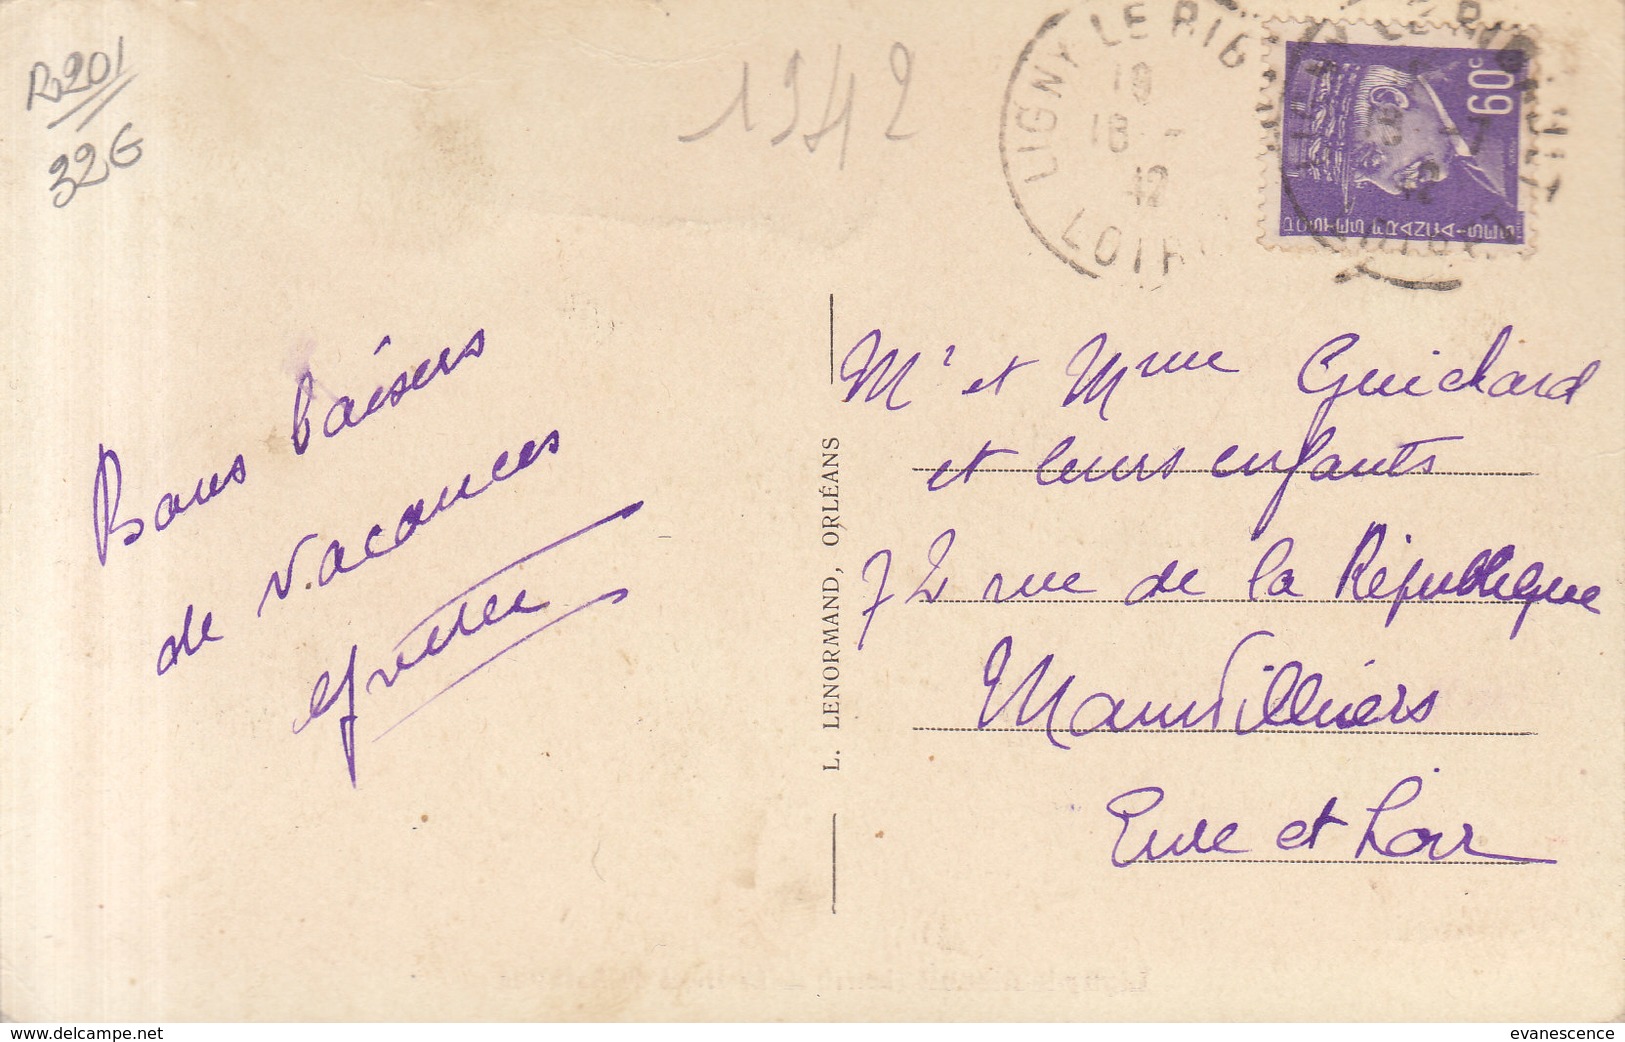 R201
32G
1942
LIGNY LE RIB
LOIR
19
18 -
42
60c
POSTES FRANÇAISES
Bons baisers
de vacances
L. LENORMAND, ORLÉANS
Mr et Mme Guichard
et leurs enfants
72 rue de la République
Mainvilliers
Eure et Loir
www.delcampe.net
evanescence